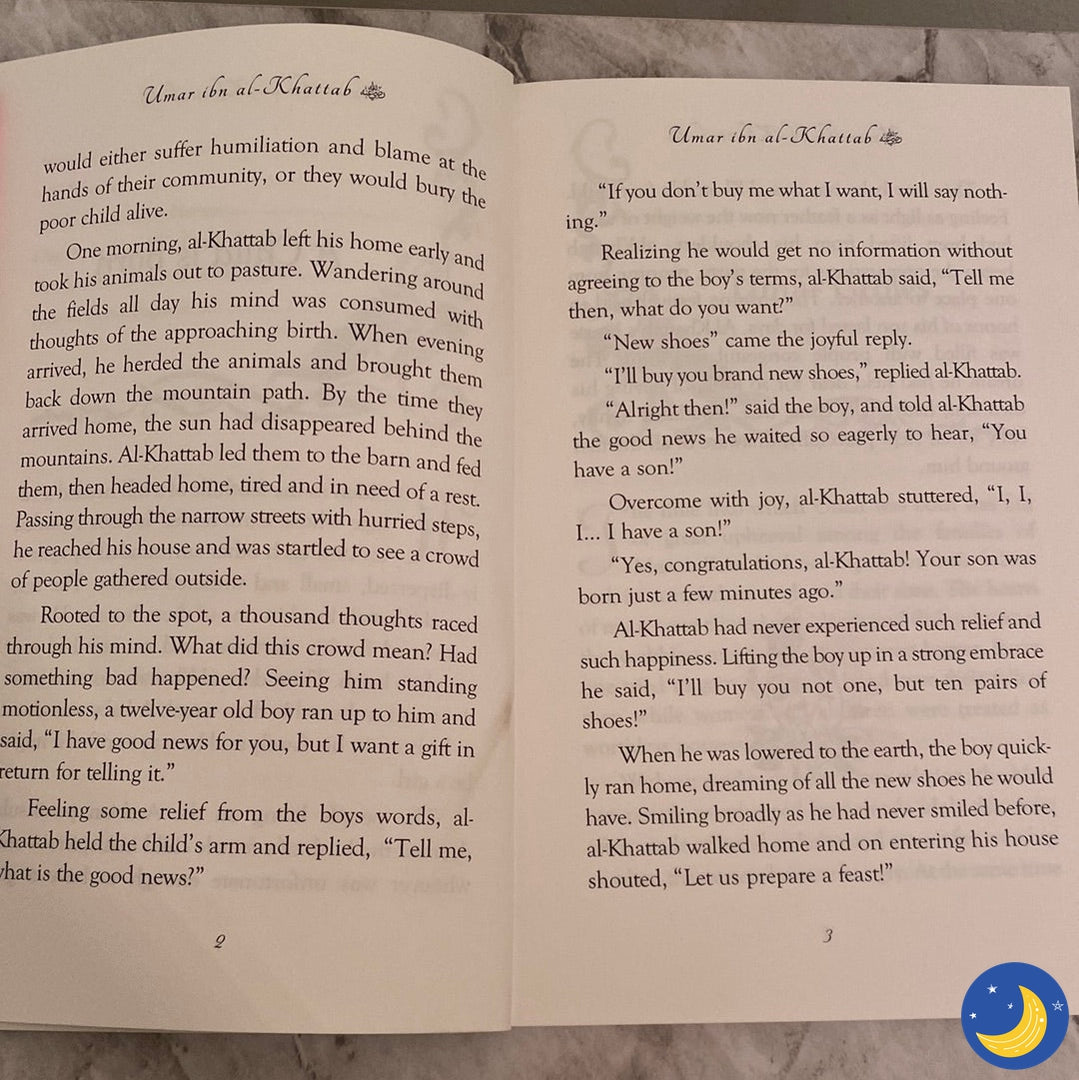 Umar ibn al-Khattab
would either suffer humiliation and blame at the
hands of their community, or they would bury the
poor child alive.
One morning, al-Khattab left his home early and
took his animals out to pasture. Wandering around
the fields all day his mind was consumed with
thoughts of the approaching birth. When evening
arrived, he herded the animals and brought them
back down the mountain path. By the time they
arrived home, the sun had disappeared behind the
mountains. Al-Khattab led them to the barn and fed
them, then headed home, tired and in need of a rest.
Passing through the narrow streets with hurried steps,
he reached his house and was startled to see a crowd
of people gathered outside.
Rooted to the spot, a thousand thoughts raced
through his mind. What did this crowd mean? Had
something bad happened? Seeing him standing
motionless, a twelve-year old boy ran up to him and
said, “I have good news for you, but I want a gift in
return for telling it.”
Feeling some relief from the boys words, al-
Khattab held the child’s arm and replied, “Tell me,
what is the good news?”
2
Umar ibn al-Khattab
“If you don’t buy me what I want, I will say noth-
ing.”
Realizing he would get no information without
agreeing to the boy’s terms, al-Khattab said, “Tell me
then, what do you want?”
“New shoes” came the joyful reply.
“I’ll buy you brand new shoes,” replied al-Khattab.
“Alright then!” said the boy, and told al-Khattab
the good news he waited so eagerly to hear, “You
have a son!”
Overcome with joy, al-Khattab stuttered, “I, I,
I... I have a son!”
“Yes, congratulations, al-Khattab! Your son was
born just a few minutes ago.”
Al-Khattab had never experienced such relief and
such happiness. Lifting the boy up in a strong embrace
he said, “I’ll buy you not one, but ten pairs of
shoes!”
When he was lowered to the earth, the boy quick-
ly ran home, dreaming of all the new shoes he would
have. Smiling broadly as he had never smiled before,
al-Khattab walked home and on entering his house
shouted, “Let us prepare a feast!”
3